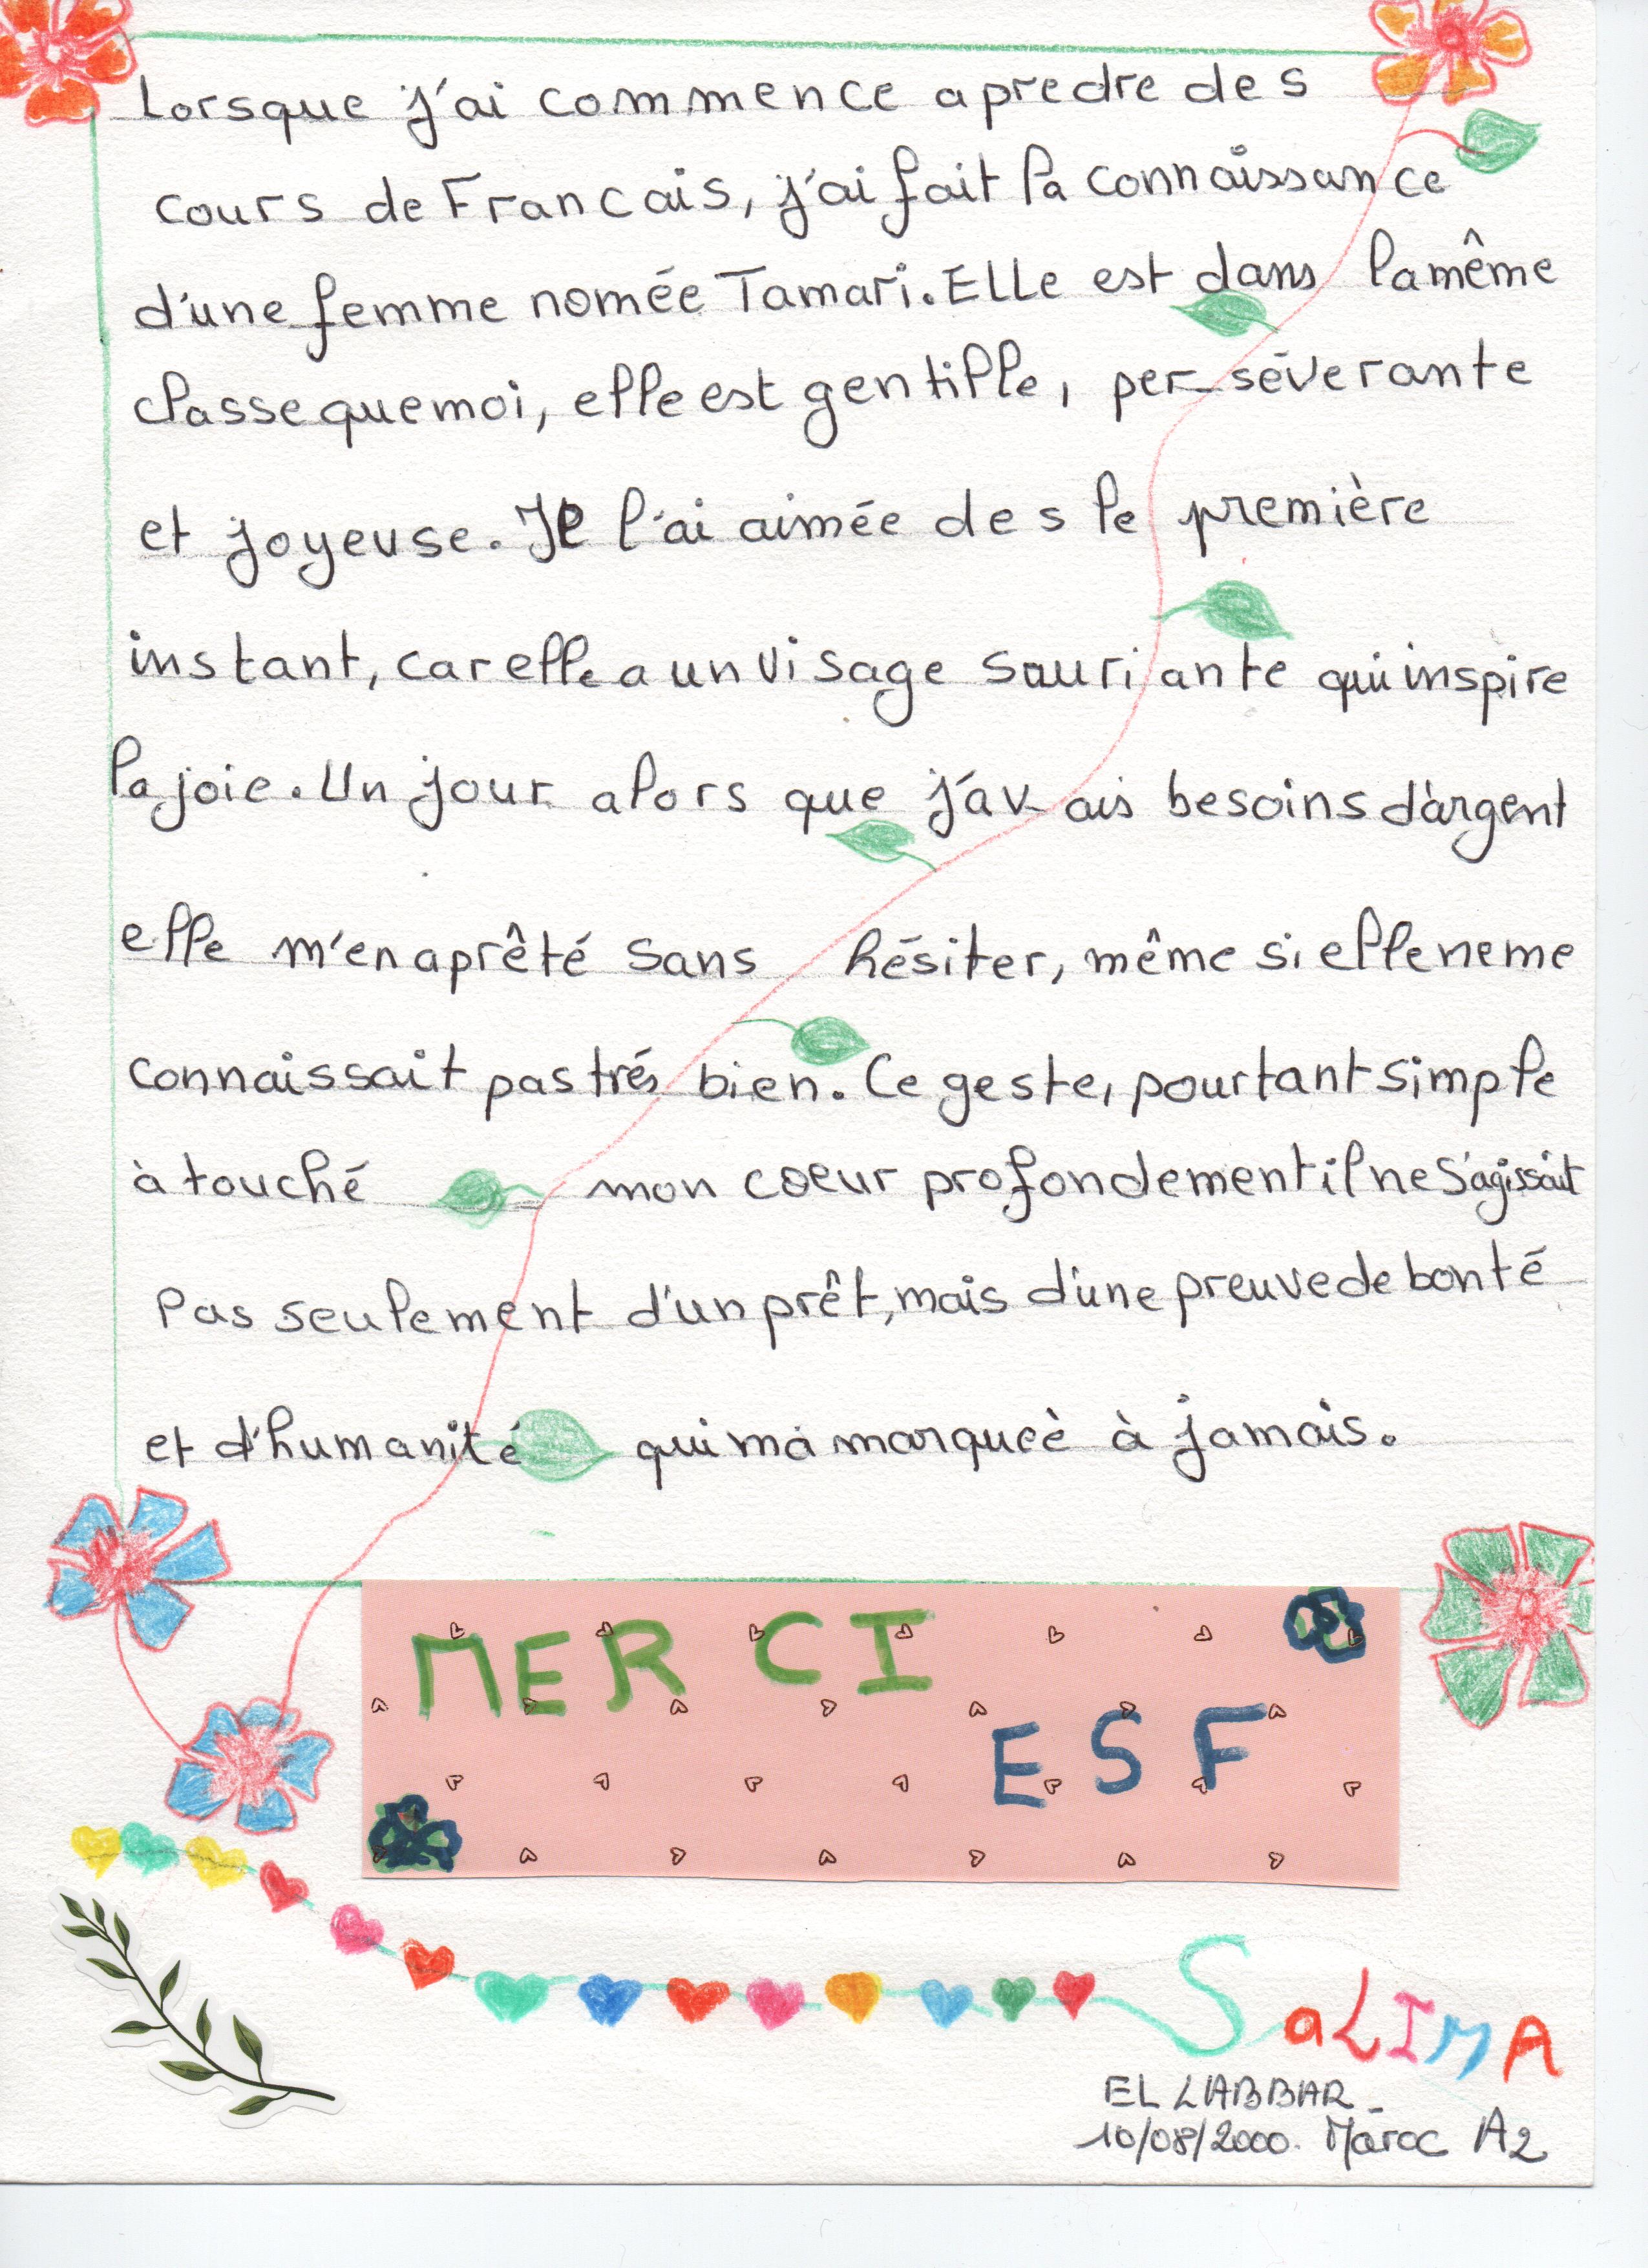 Lorsque j'ai commence a predre des
cours de Francais, j'ai fait la connaissance
d'une femme nomée Tamari. Elle est dans la même
classe que moi, elle est gentille, per-séverante
et joyeuse. Je l'ai aimée des le première
instant, car elle a un visage souriante qui inspire
la joie. Un jour alors que j'av-ais besoins d'argent
elle m'en a prêté sans hésiter, même si elle ne me
connaissait pas trés bien. Ce geste, pourtant simple
à touché mon coeur profondement il ne s'agissait
Pas seulement d'un prêt, mais d'une preuve de bonté
et d'humanité qui ma marqueè à jamais.
MERCI
ESF
SaLIMA
EL LABBAR
10/08/2000. Maroc A2